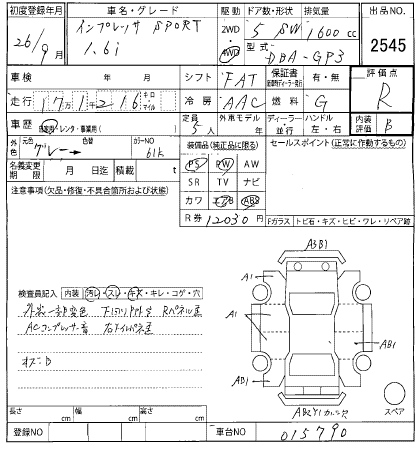 初度登録年月 車名・グレード 駆動 ドア数・形状 排気量 出品NO.
26/9月 インプレッサ SPORT 1.6i 2WD 4WD 5 SW 1600cc 2545
型式 DBA-GP3
車検 年 月 シフト FAT 保証書 有・無 評価点
走行 17万1千216 キロ マイル 冷房 AAC 燃料 G R
車歴 自家用・レンタ・事業用( ) 定員 5人 外車モデル 年 ディーラー 並行 ハンドル 左・右 内装評価 B
外色 元色 グレー 色替 カラーNO 61K 装備品(純正品に限る) セールスポイント(正常に作動するもの)
名義変更期限 月 日迄 積載 t PS PW AW
SR TV ナビ
注意事項(欠品・修復・不具合箇所および状態) カワ エアB ABS
R券 12030円 Fガラス トビ石・キズ・ヒビ・ワレ・リペア跡
A3B1
A1
A1
AB1
AB1
検査員記入 内装 汚レ・スレ・キズ・キレ・コゲ・穴
ACコンプレッサー音
スペア
長さ cm 幅 cm 高さ cm
登録NO 車台NO 015790